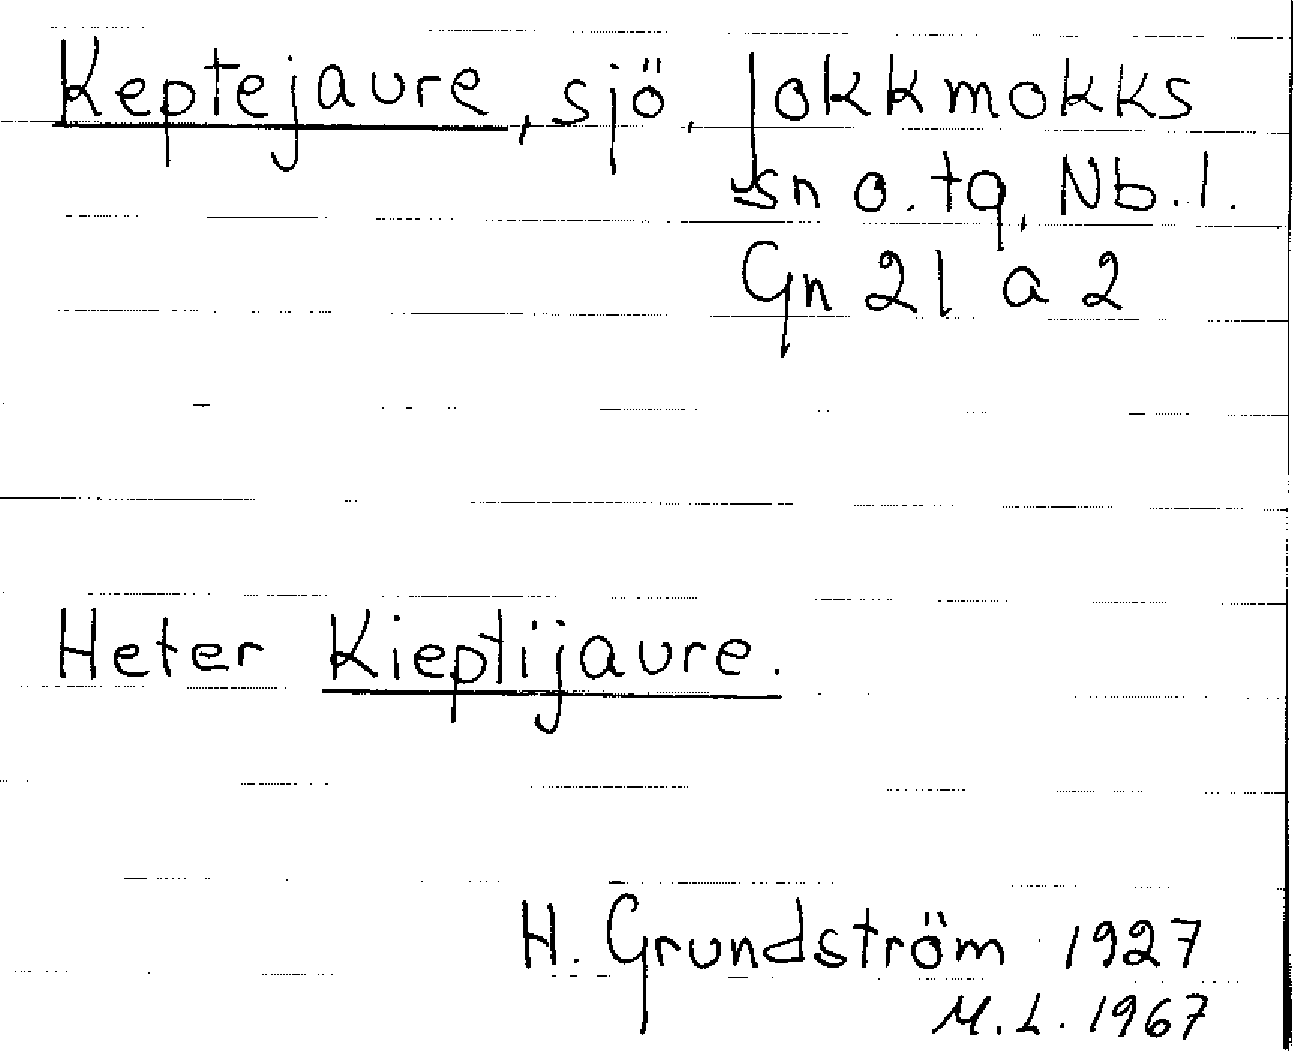 Keptejaure, sjö, Jokkmokks
sn o. tg, Nb. l.
Gn 21 a 2
Heter Kieptijaure.
H. Grundström 1927
M. L. 1967